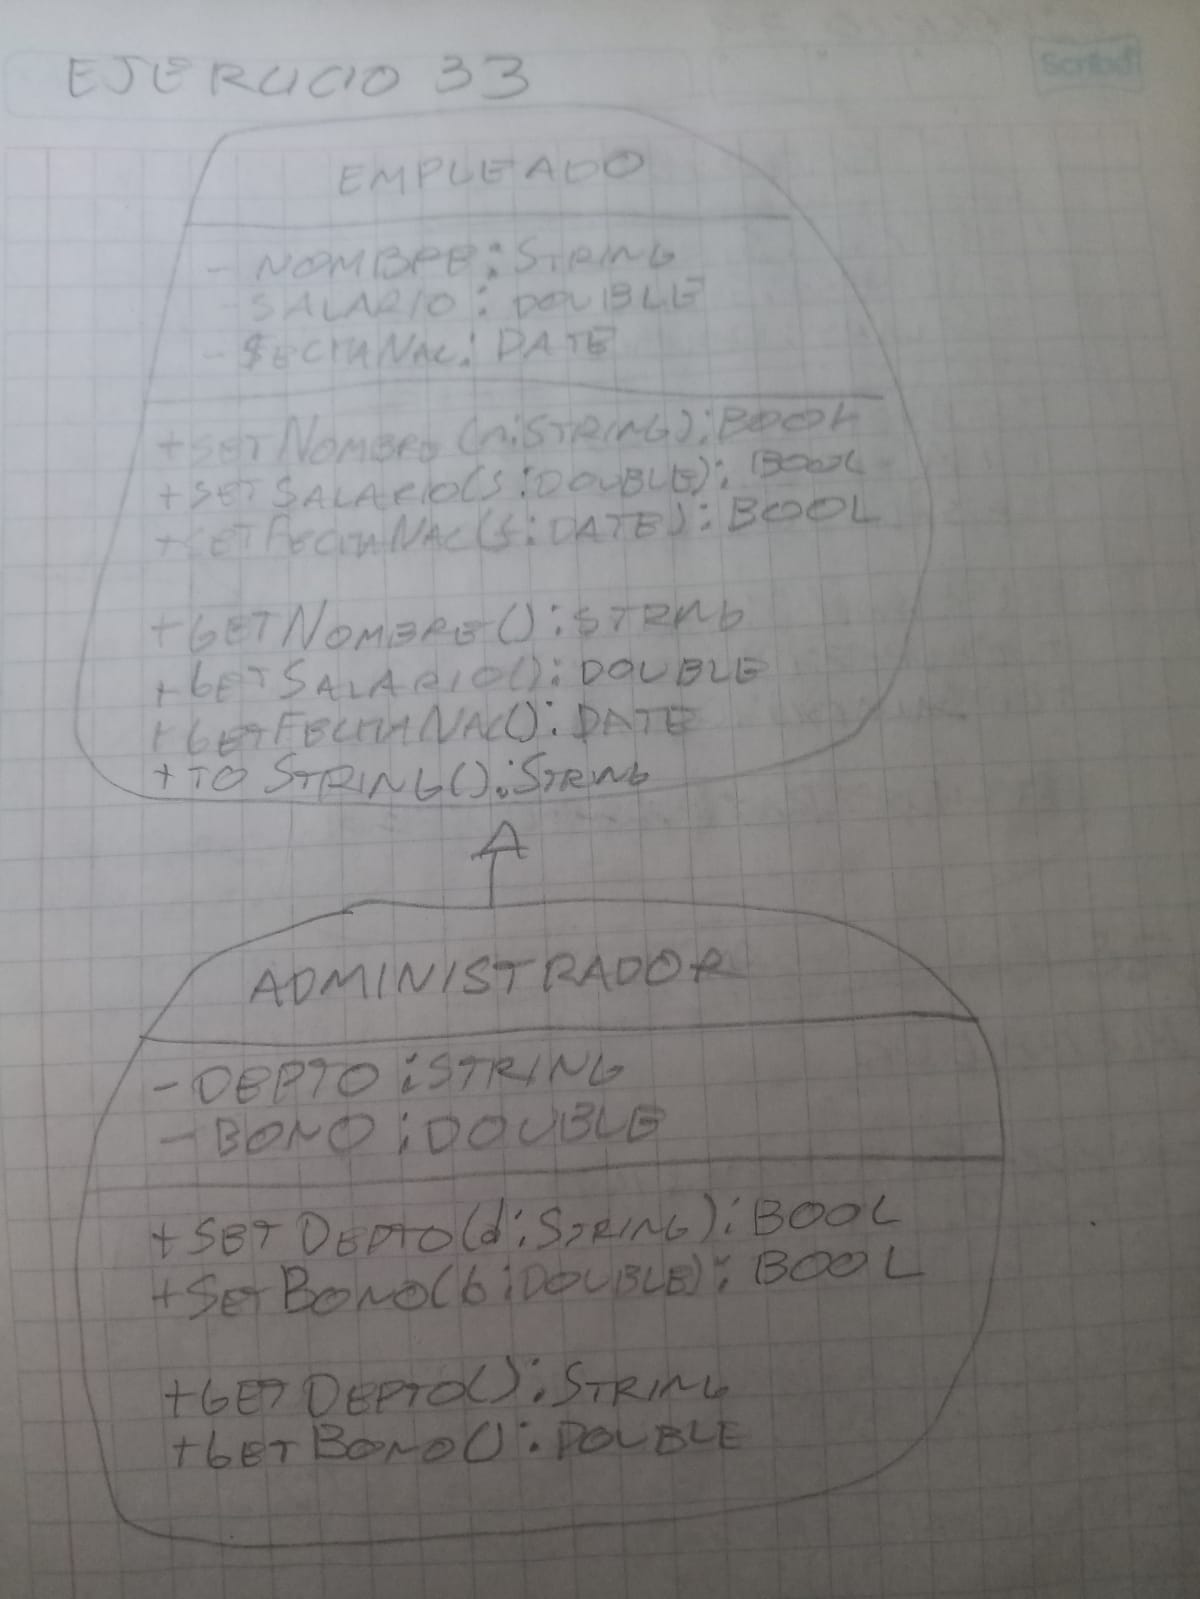 EJERCICIO 33
Scribd
EMPLEADO
- NOMBRE: STRING
- SALARIO: DOUBLE
- FECHANAC: DATE
+SETNOMBRE(n:STRING): BOOL
+SETSALARIO(S:DOUBLE): BOOL
+SETFECHANAC(f:DATE): BOOL
+GETNOMBRE(): STRING
+GETSALARIO(): DOUBLE
+GETFECHANAC(): DATE
+TO STRING(): STRING
ADMINISTRADOR
- DEPTO: STRING
- BONO: DOUBLE
+SET DEPTO(d:STRING): BOOL
+SET BONO(b:DOUBLE): BOOL
+GET DEPTO(): STRING
+GET BONO(): DOUBLE